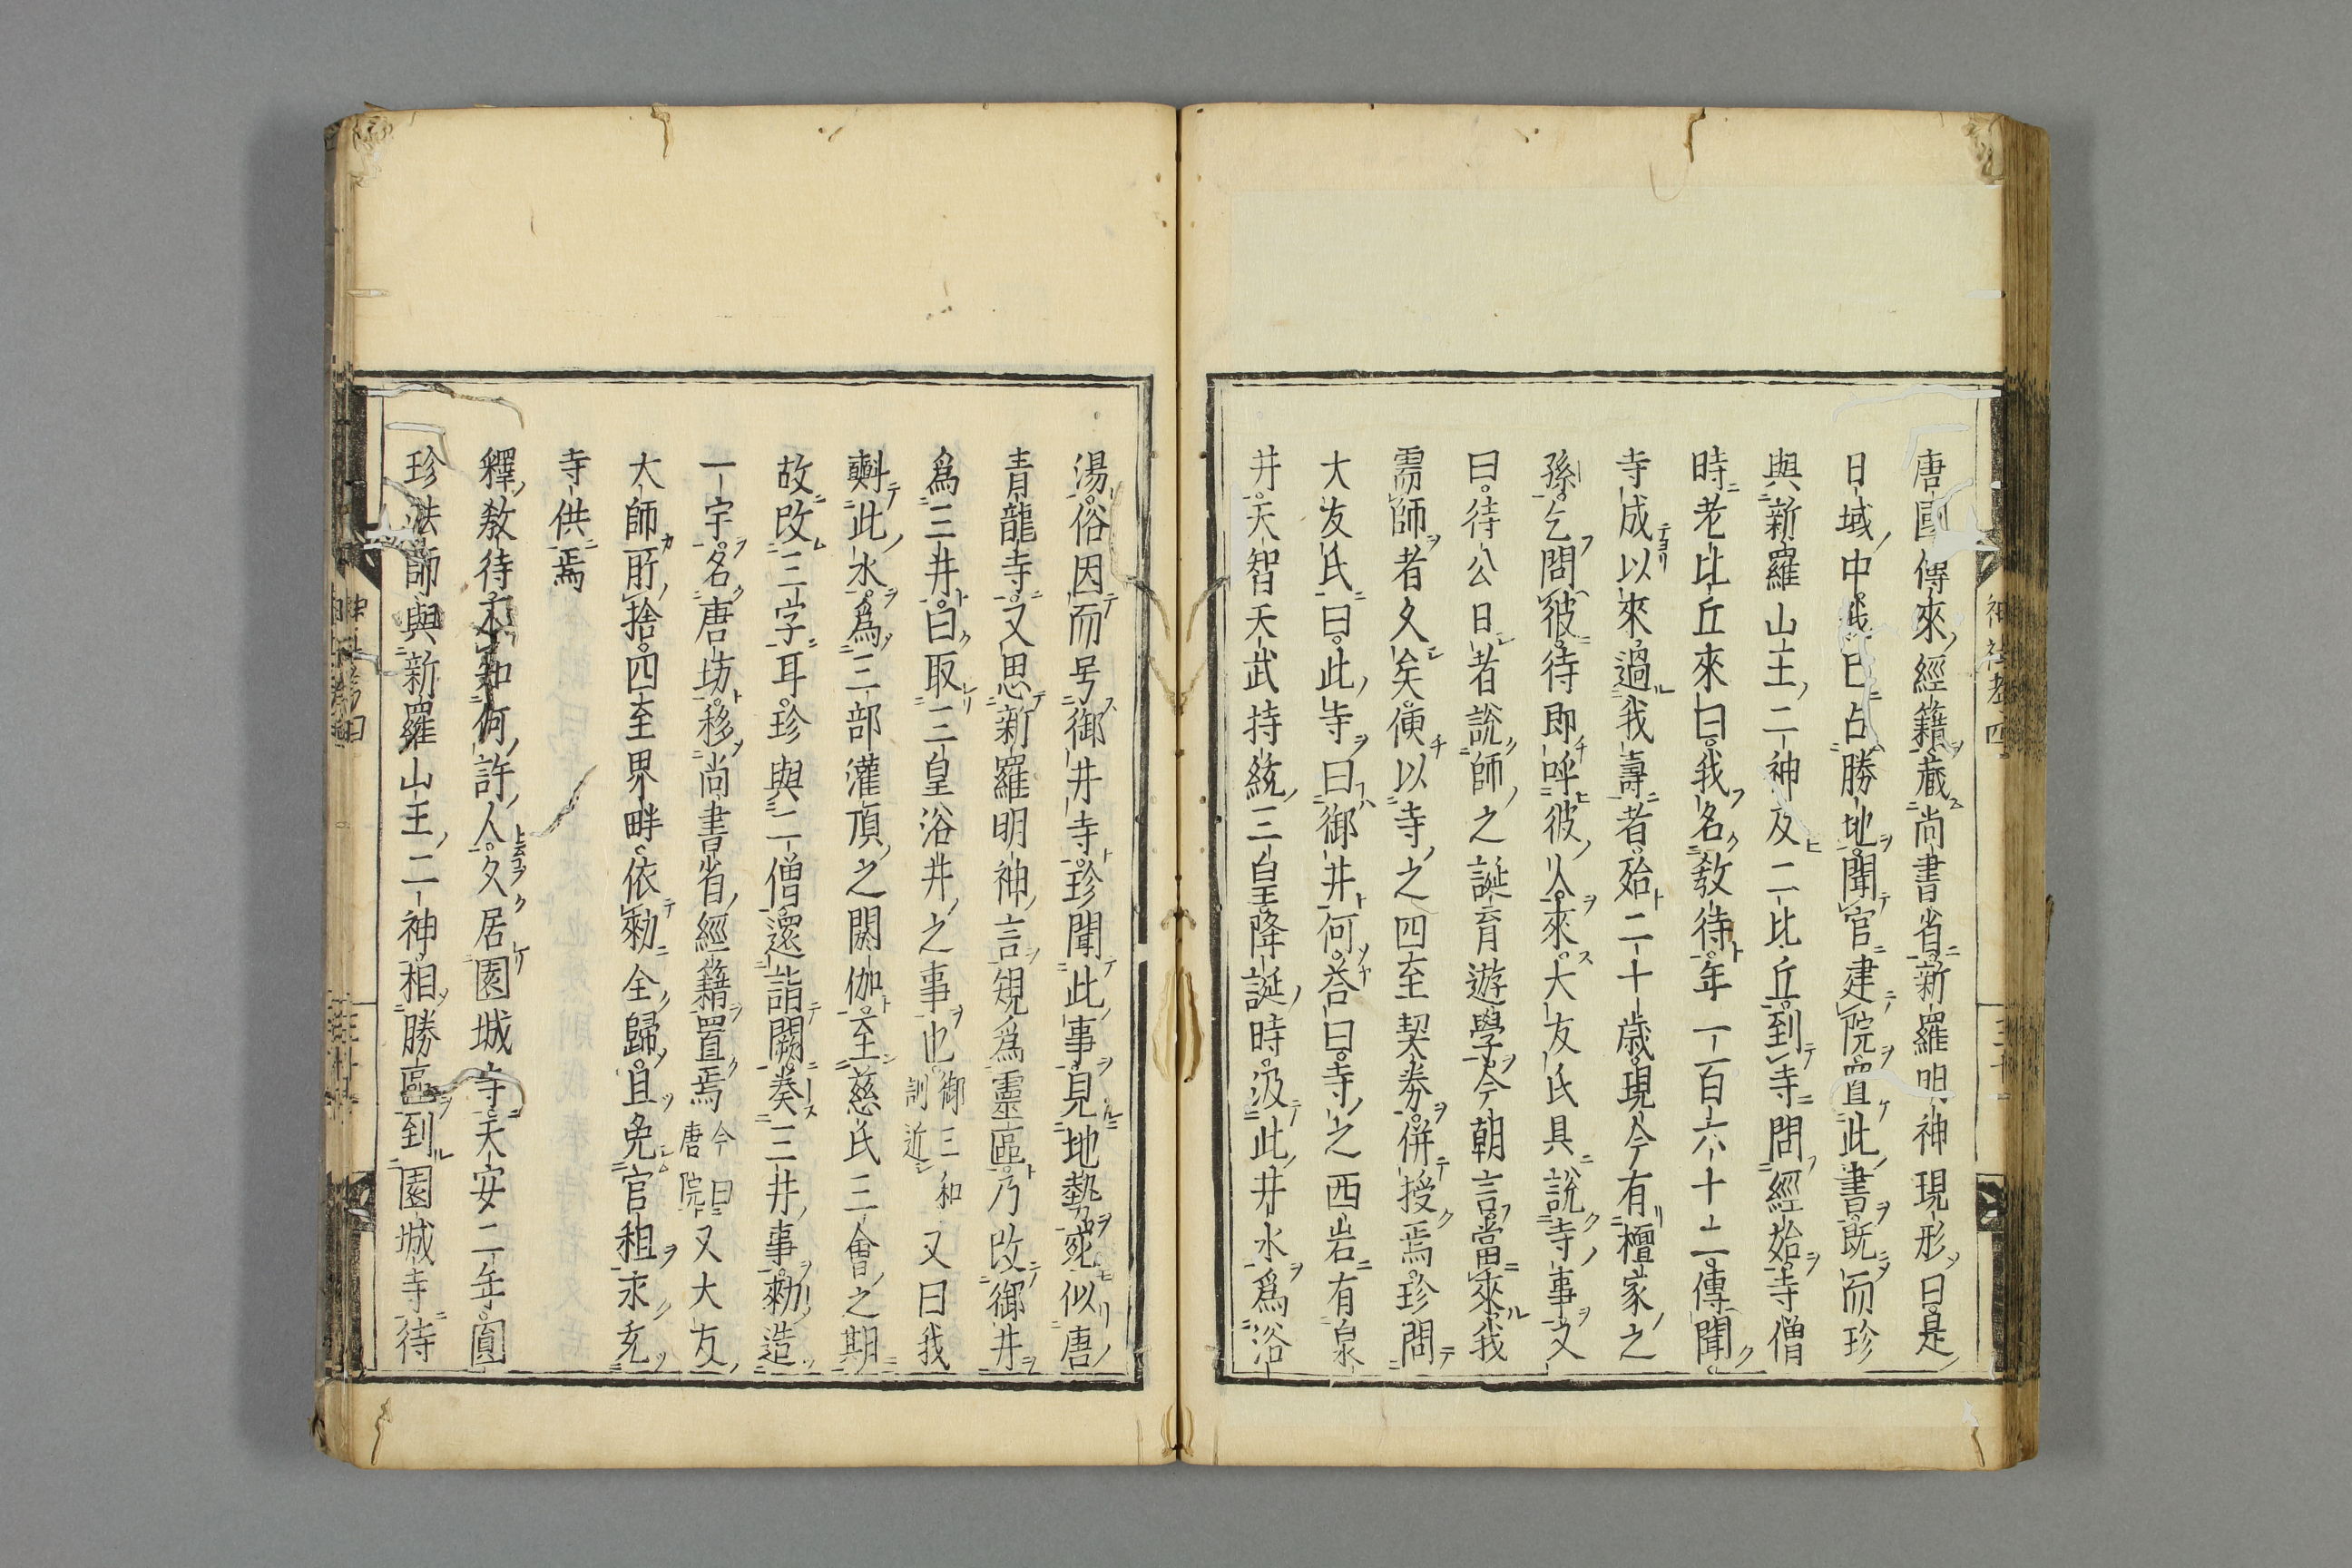 唐國傳來經籍藏尚書省新羅明神現形曰是
日域中我已占勝地聞官建院置此書既而珍
與新羅山王二神及二比丘到寺問經始寺僧
時老比丘來曰我名教待年一百六十二傳聞
寺成以來過我壽者殆二十歲現今有檀家之
孫乞問彼待即呼彼人來大友氏具說寺事又
曰待公日者說師之誕育遊學今朝言當來我
需師者久矣便以寺之四至契券併授焉珍問
大友氏曰此寺曰御井何荅曰寺之西岩有泉
井天智天武持統三皇降誕時汲此井水爲浴
神社考四
湯俗因而号御井寺珍聞此事見地勢宛似唐
青龍寺又思新羅明神言䂓爲靈區乃改御井
爲三井曰取三皇浴井之事也御三和訓近又曰我
㪺此水爲三部灌頂之閼伽至慈氏三會之期
故改三字耳珍與二僧還詣闕奏三井事勅造
一宇名唐坊移尚書省經籍置焉今曰唐院又大友
大師所捨四至界畔依勅全歸且免官租永充
寺供焉
釋教待不知何許人久居園城寺天安二年圓
珍法師與新羅山王二神相勝區到園城寺待